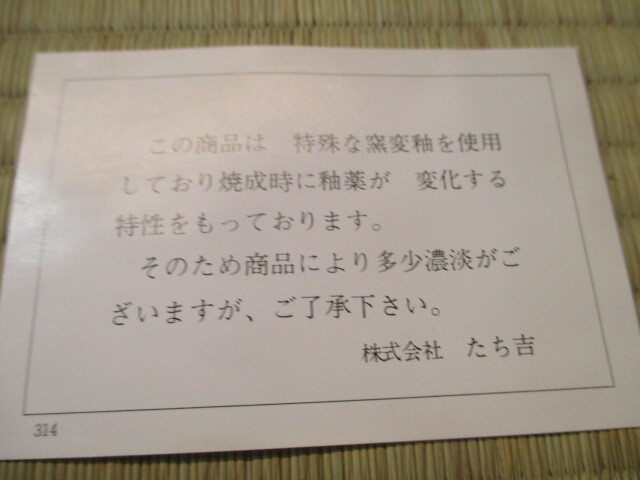 この商品は　特殊な窯変釉を使用
しており焼成時に釉薬が　変化する
特性をもっております。
そのため商品により多少濃淡がご
ざいますが、ご了承下さい。
株式会社　たち吉
314